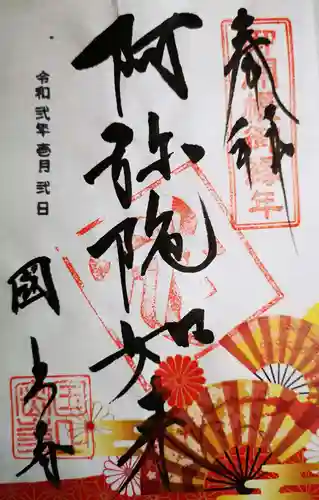 奉拝
阿弥陀如来
令和弐年壱月弐日
國上寺